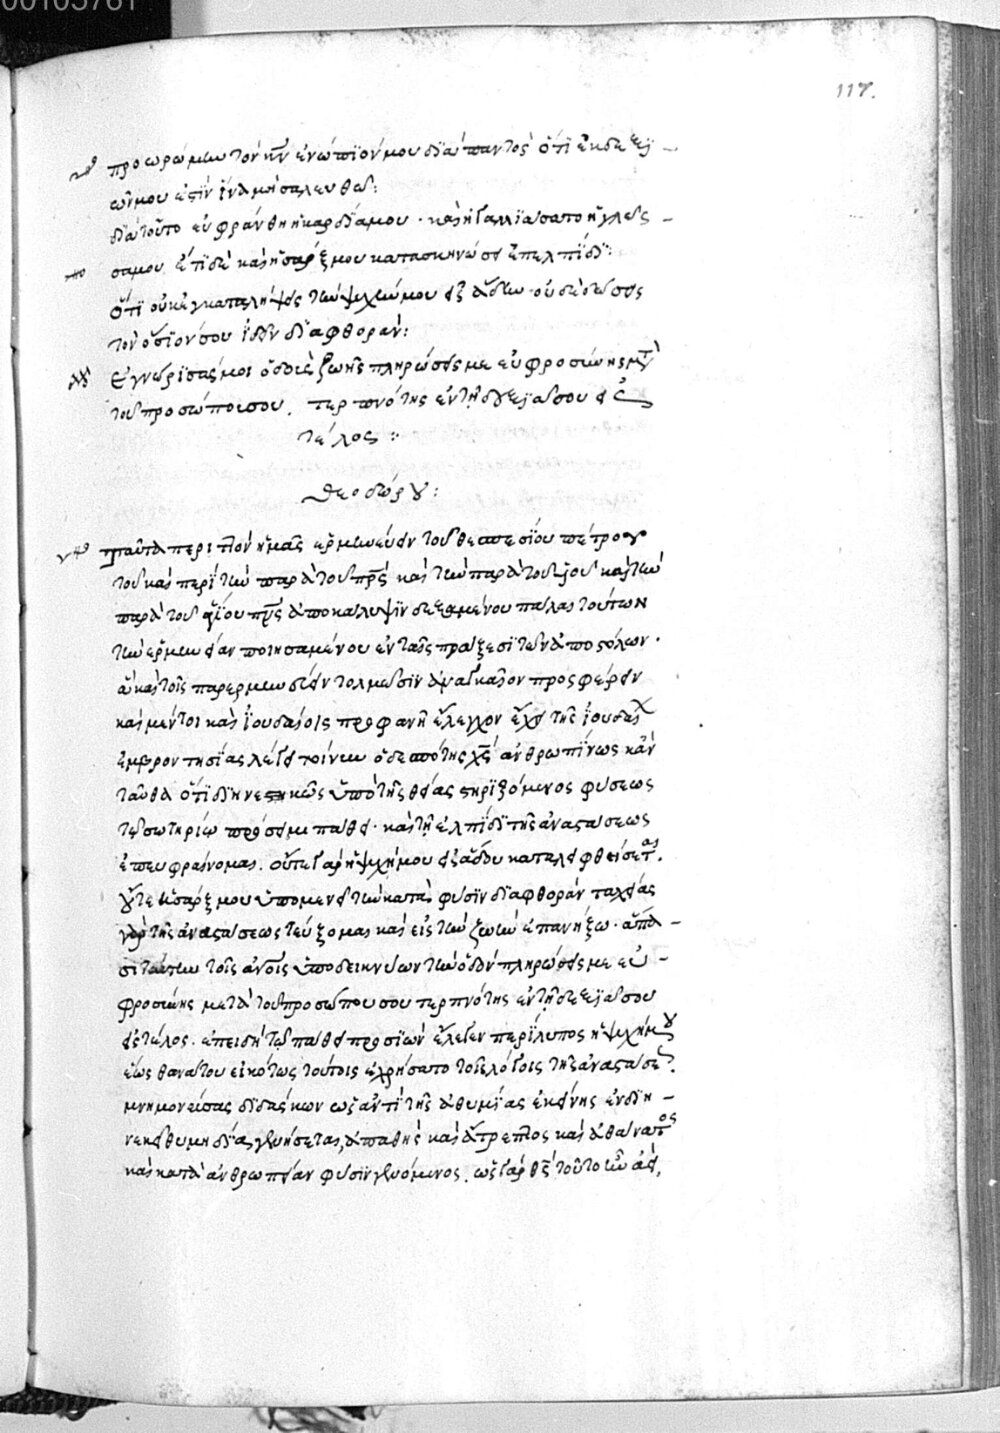 00105761
117.
προωρώμην τὸν κ̅ν̅ ἐνώπϊόν μου διὰ παντὸς ὅτϊ ἐκ δεξϊ
ῶν μου ἐστὶν ἵνα μὴ σαλευθῶ:
διὰ τοῦτο εὐφράνθη ἡ καρδία μου · καὶ ἠγαλλϊάσατο ἡ γλῶσ
σα μου ἔτϊ δὲ καὶ ἡ σάρξ μου κατασκηνώσει ἐπ' ἐλπίδϊ:
ὅτϊ οὐκ ἐγκαταλήψεις τὴν ψυχήν μου εἰς ἅδην οὐδὲ δώσεις
τὸν ὅσϊόν σου ἰδεῖν διαφθοράν:
ἐγνώρϊσάς μοι ὁδοὺς ζωῆς πληρώσεις με εὐφροσύνης μετὰ
τοῦ προσώπου σου. τερπνότης ἐν τῇ δεξϊᾷ σου εἰς
τέλος:
Θεοδώρου:
ταῦτα περιττὸν ἡμᾶς ἑρμηνεύειν τοῦ θεσπεσίου πέτρου
τοῦ καὶ περὶ τῶν παρὰ τοῦ π̅ρ̅ς̅ καὶ τῶν παρὰ τοῦ υἱοῦ καὶ τὴν
παρὰ τοῦ ἁγίου π̅ν̅ς̅ ἀποκάλυψϊν δεξαμένου πάλαι τούτων
τὴν ἑρμηνείαν ποιησαμένου ἐν ταῖς πράξεσϊ τῶν ἀποστόλων ·
ἃ καὶ τοῖς παρερμηνεύειν τολμῶσϊν ἀναγκαῖον προσφέρειν
καὶ μέντοι καὶ ἰουδαίοις προφανῆ ἔλεγχον ἔχει τῆς ἰουδαϊκ
ἐμβροντησίας λέγει τοίνυν ὁ δεσπότης χ̅ς̅ ἀνθρωπίνως κἀν
ταῦθα ὅτϊ διηνεκῶς ὑπὸ τῆς θείας στηρϊζόμενος φύσεως
τῷ σωτηρίῳ πρόσειμι πάθει · καὶ τῇ ἐλπίδι τῆς ἀναστάσεως
ἐπευφραίνομαι. οὔτε γὰρ ἡ ψυχή μου ἐν ἅδου καταλειφθήσεται.
οὔτε ἡ σάρξ μου ὑπομένει τὴν κατὰ φύσϊν διαφθορὰν ταχείας
γὰρ τῆς ἀναστάσεως τεύξομαι καὶ εἰς τὴν ζωὴν ἐπανήξω · ἅπα
σι ταύτην τοῖς ἀν̅οις ὑποδεικνύων τὴν ὁδὸν πληρώσεις με εὐ
φροσύνης μετὰ τοῦ προσώπου σου τερπνότης ἐν τῇ δεξϊᾷ σου
εἰς τέλος. ἐπειδὴ τῷ πάθει προσϊὼν ἔλεγεν περίλυπος ἡ ψυχή μου
ἕως θανάτου εἰκότως τούτοις ἐχρήσατο τοῖς λόγοις τῆς ἀναστάσεως
μνημονεύσας διδάσκων ὡς ἀντὶ τῆς ἀθυμίας ἐκείνης ἐν διη
νεκεῖ θυμηδίᾳ γενήσεται, ἀπαθὴς καὶ ἄτρεπτος καὶ ἀθάνατος
καὶ κατὰ ἀνθρωπείαν φύσϊν γενόμενος. ὡς γὰρ θ̅ς̅ τοῦτο ἦν ἀεί,